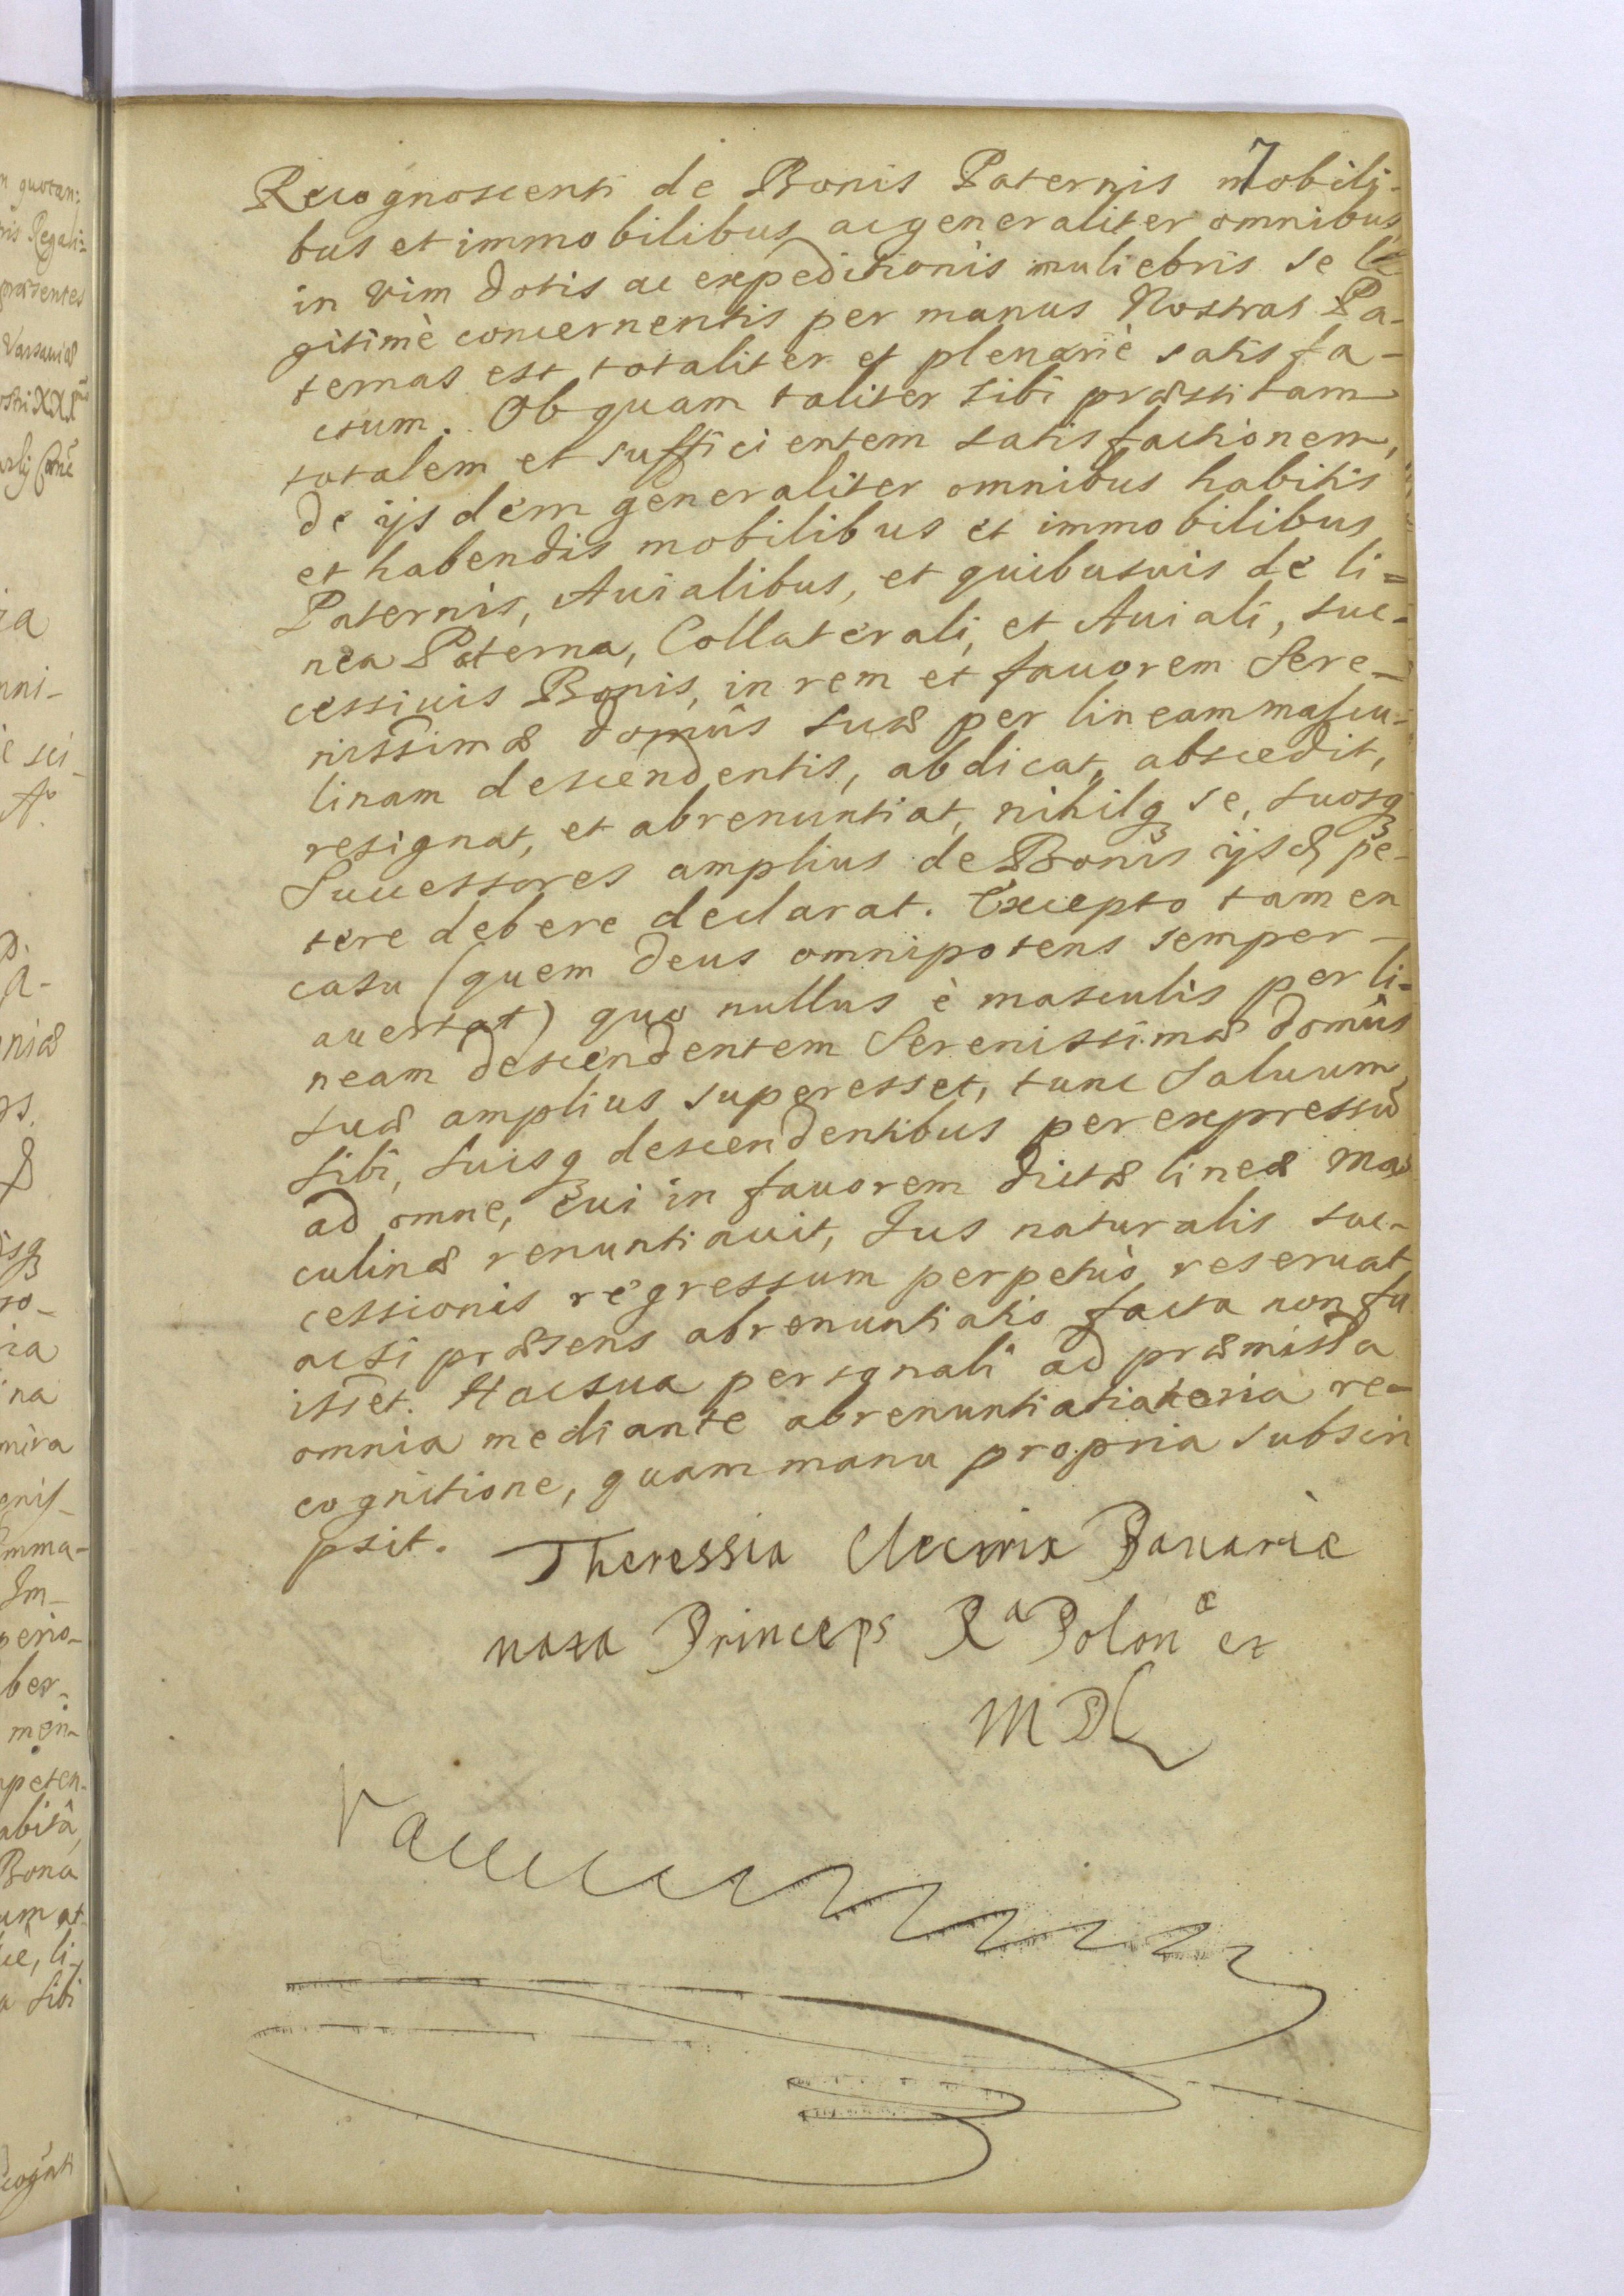 7
Recognoscenti de Bonis Paternis mobilj-
bus et immobilibus ac generaliter omnibus
in vim dotis ac expeditionis muliebris se le
gitimè concernentis per manus Nostras Pa-
ternas est totaliter et plenariè satisfa-
ctum. Ob quam taliter sibi præstitam
totalem et sufficientem satisfactionem,
de ijsdem generaliter omnibus habitis
et habendis mobilibus et immobilibus
Paternis, Auialibus, et quibusuis de li=
nea Paterna, Collaterali, et Auiali, suc-
cessiuis Bonis, in rem et fauorem Sere-
nissimæ domûs suæ per lineam mascu-
linam descendentis, abdicat, abscedit,
resignat, et abrenuntiat, nihilq se, suosq
Successores amplius de Bonis ijsd pe-
tere debere declarat. Excepto tamen
casu (quem Deus omnipotens semper
auertat) quo nullus è masculis per li-
neam descendentem Serenissimæ domûs
suæ amplius superesset, tunc saluum
sibi, suisq descendentibus per expressũ
ad omne, cui in fauorem dictæ lineæ mas
culinæ renuntiauit, Jus naturalis suc-
cessionis regressum perpetuò reseruat
acsi præsens abrenuntiatio facta non fu
isset. Hac sua personali ad præmissa
omnia mediante abrenuntiatiatoria re-
cognitione, quam manu propria subscri
psit.
Theressia Electrix Bauariæ
nata Princeps Rᵃ Polonᵃ et
MDL